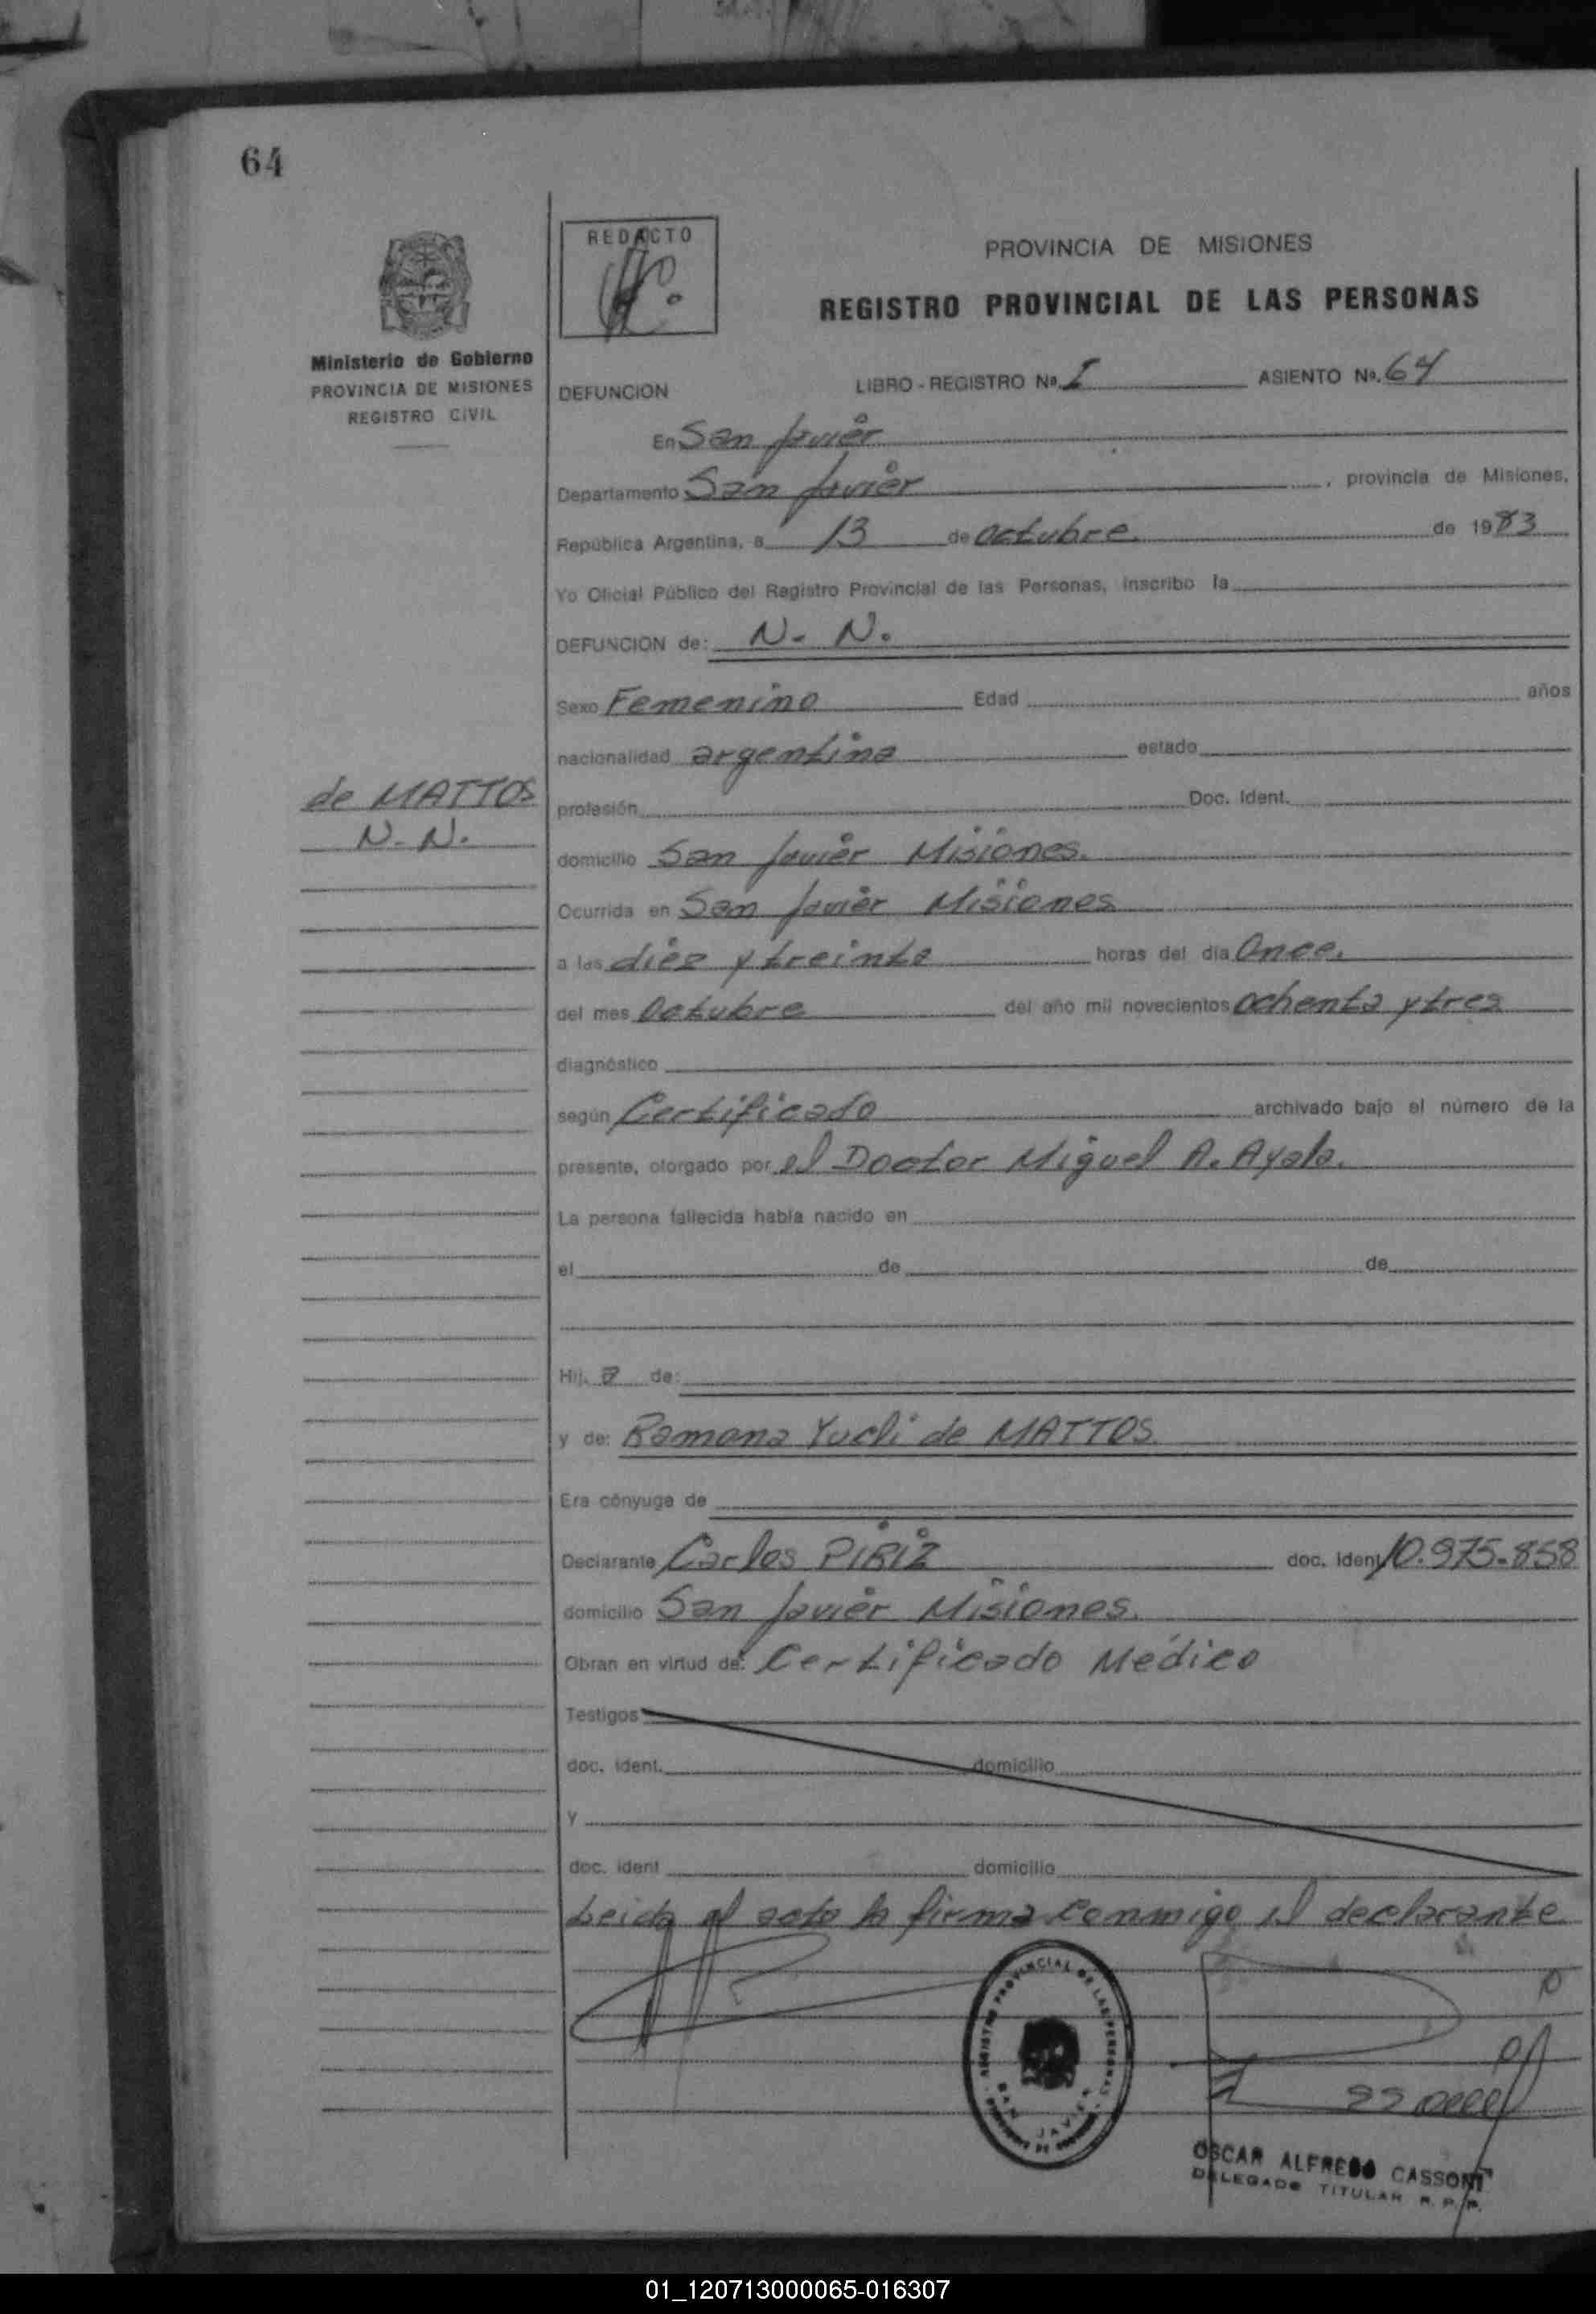 64
REDACTO
PROVINCIA DE MISIONES
REGISTRO PROVINCIAL DE LAS PERSONAS
Ministerio de Gobierno
PROVINCIA DE MISIONES
REGISTRO CIVIL
DEFUNCION LIBRO - REGISTRO Nº I ASIENTO Nº. 64
En San Javier
Departamento San Javier, provincia de Misiones,
República Argentina, a 13 de octubre de 1983
Yo Oficial Público del Registro Provincial de las Personas, inscribo la
DEFUNCION de: N. N.
Sexo Femenino Edad años
nacionalidad argentina estado
de MATTOS
N. N.
profesión Doc. Ident.
domicilio San Javier Misiones.
Ocurrida en San Javier Misiones
a las diez y treinta horas del día Once.
del mes Octubre del año mil novecientos ochenta y tres
diagnóstico
según Certificado archivado bajo el número de la
presente, otorgado por el Doctor Miguel A. Ayala.
La persona fallecida había nacido en
el de de
Hij a de:
y de: Ramona Yucli de MATTOS
Era cónyuge de
Declarante Carlos PIRIZ doc. ident 10.975.858
domicilio San Javier Misiones.
Obran en virtud de: Certificado Médico
Testigos
doc. ident. domicilio
y
doc. ident domicilio
Leida el acta la firma conmigo el declarante
REGISTRO PROVINCIAL DE LAS PERSONAS
SAN JAVIER
OSCAR ALFREDO CASSONI
DELEGADO TITULAR R. P. P.
01_120713000065-016307